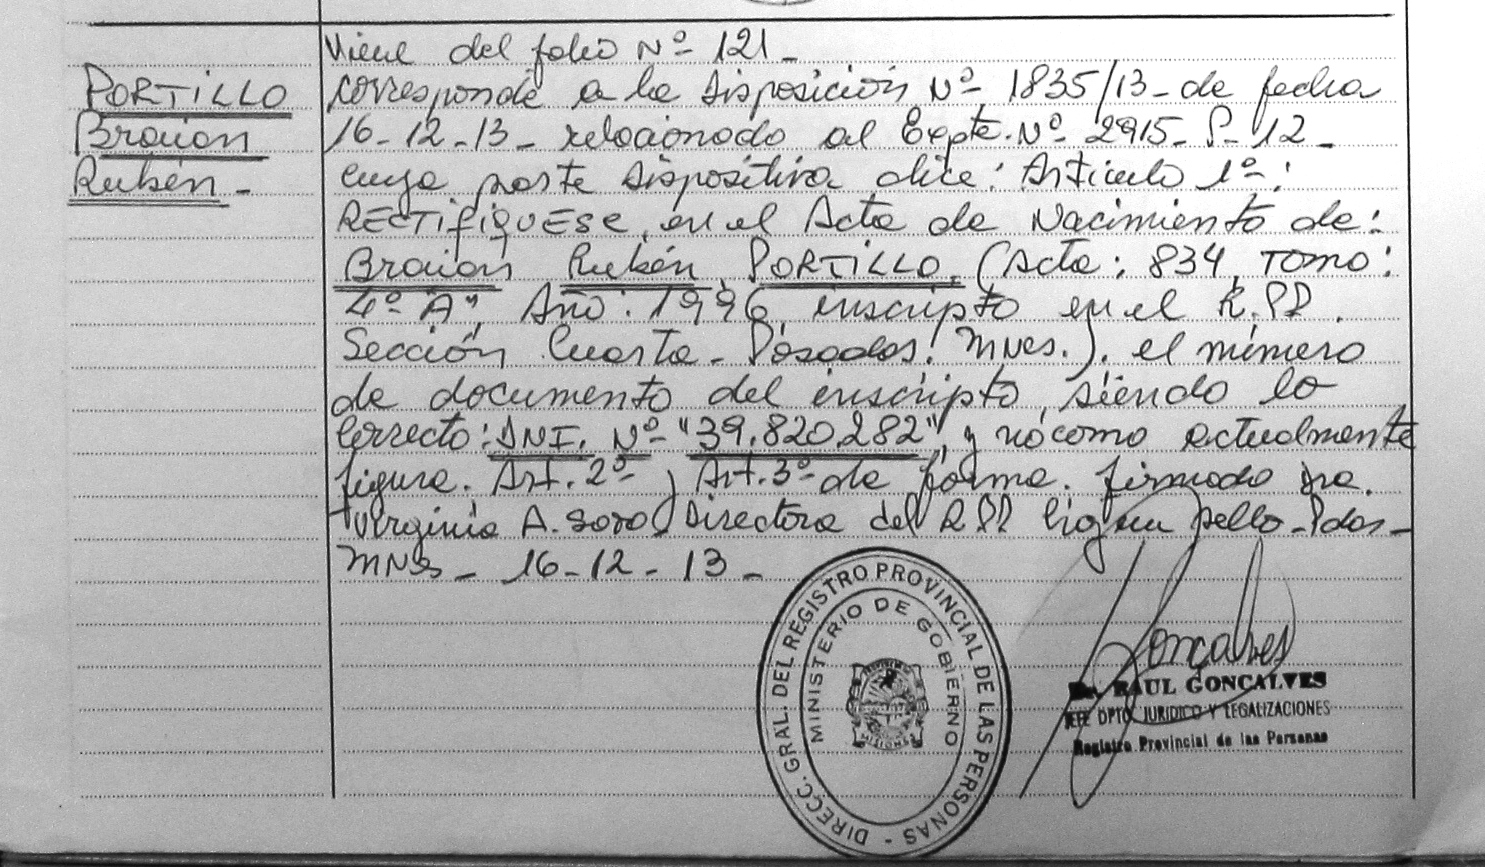 PORTILLO
Braion
Rubén -
Viene del folio Nº 121 -
Corresponde a la Disposición Nº 1835/13 - de fecha
16-12-13 - relacionado al Expte. Nº 2915 - P - 12 -
cuya parte Dispositiva dice: Articulo 1º:
RECTIFIQUESE, en el Acta de Nacimiento de:
Braion Rubén PORTILLO, (Acta: 834, TOMO:
4º A", Año: 1996, inscripto en el R.PP.
Sección Cuarta - Posadas. Mnes.). el número
de documento del inscripto, siendo lo
Correcto: DNI. Nº "39.820.282", y no como actualmente
figura. Art. 2º y Art. 3º de forma. firmado
Virginia A. Directora del RPP Hay un sello - Pdas -
MNES - 16-12-13 -
DIRECC. GRAL. DEL REGISTRO PROVINCIAL DE LAS PERSONAS -
MINISTERIO DE GOBIERNO
MISIONES
Gonçalves
RAUL GONCALVES
JEFE DPTO. JURIDICO Y LEGALIZACIONES
Registro Provincial de las Personas